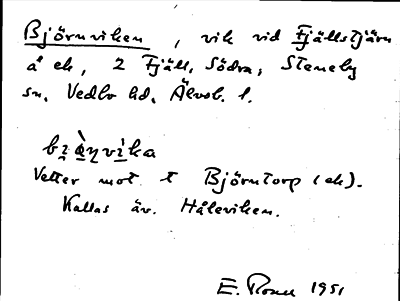 Björnviken, vik vid Fjällstjärn
å ek, 2 Fjäll, Södra, Steneby
sn, Vedbo hd, Älvsb. l.
Vetter mot t Björntorp (ek).
Kallas äv. Håleviken.
E. Rosell 1951